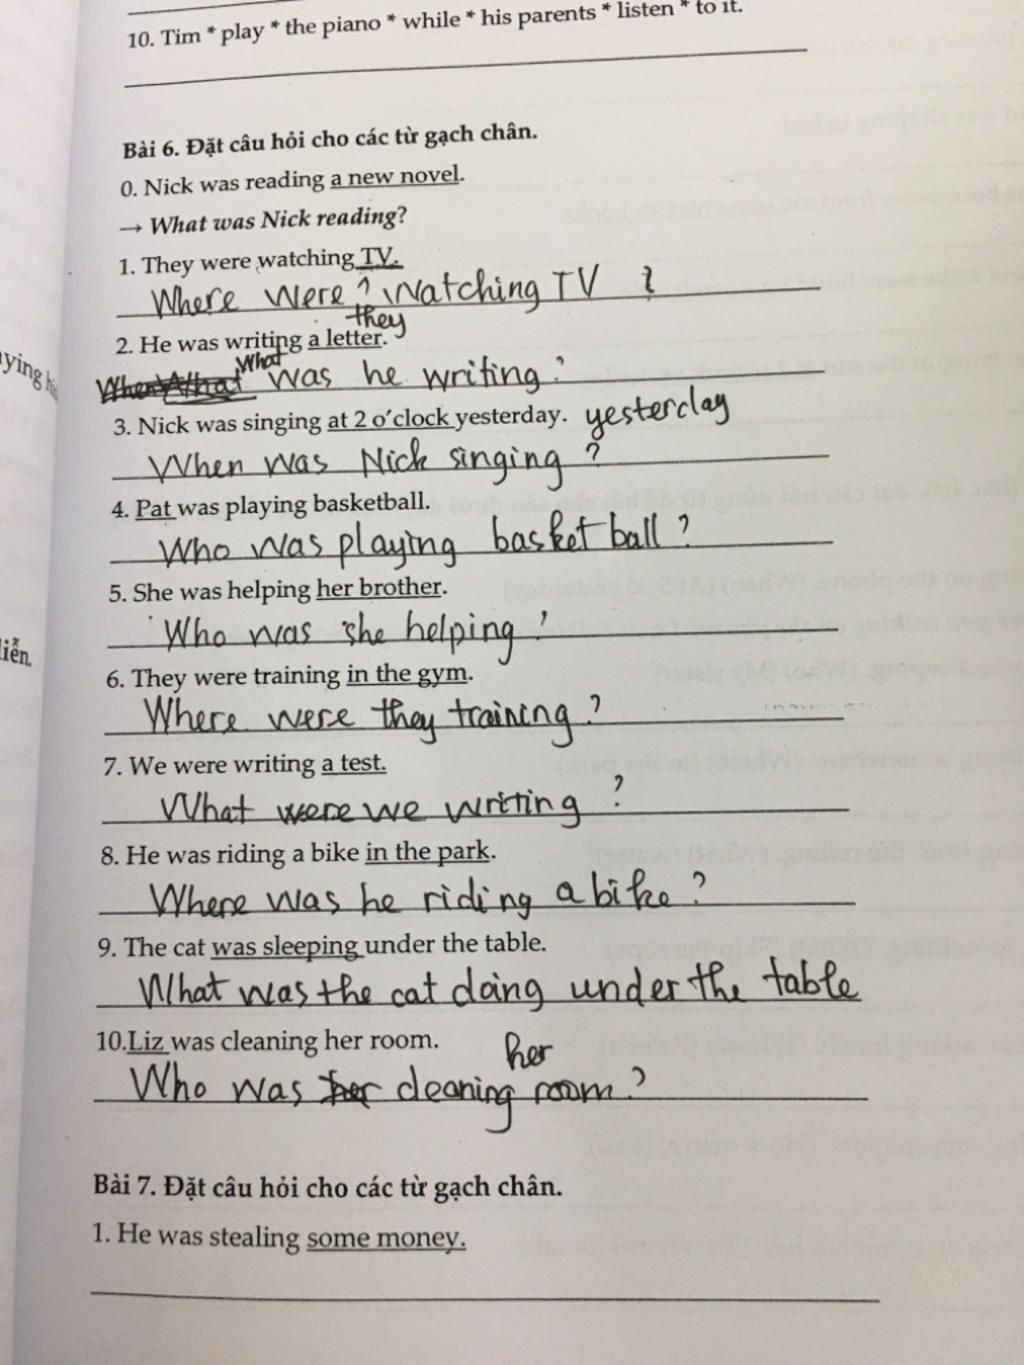 10. Tim * play * the piano * while * his parents * listen * to it.
Bài 6. Đặt câu hỏi cho các từ gạch chân.
0. Nick was reading a new novel.
→ What was Nick reading?
1. They were watching TV.
Where were ^ watching TV ?
they
2. He was writing a letter.
What
When What was he writing?
3. Nick was singing at 2 o'clock yesterday. yesterday
When was Nick singing ?
4. Pat was playing basketball.
Who was playing basket ball ?
5. She was helping her brother.
Who was she helping ?
6. They were training in the gym.
Where were they training ?
7. We were writing a test.
What were we writing ?
8. He was riding a bike in the park.
Where was he riding a bike ?
9. The cat was sleeping under the table.
What was the cat doing under the table
10.Liz was cleaning her room.
her
Who was her cleaning room ?
Bài 7. Đặt câu hỏi cho các từ gạch chân.
1. He was stealing some money.